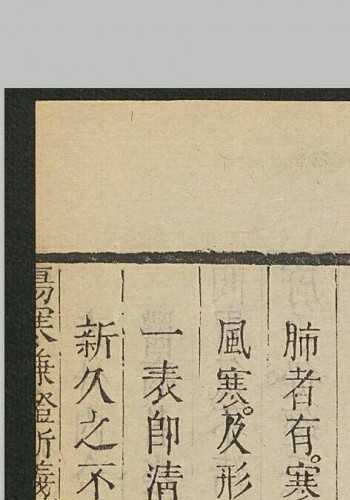 肺者有。寒
風寒。及形
一表即清
新久之不
傷寒兼證析義